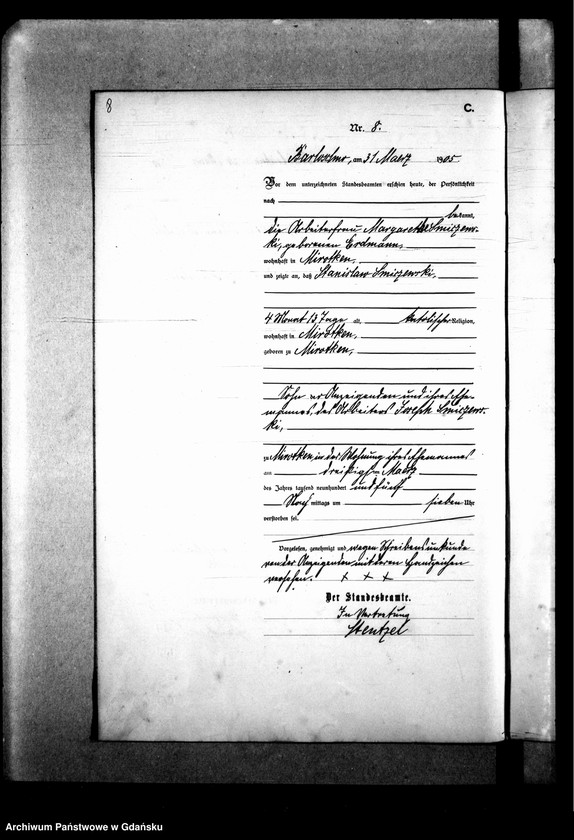 8
C.
Nr. 8.
Karlsthro, am 31 Maerz 1905.
Vor dem unterzeichneten Standesbeamten erschien heute, der Persönlichkeit
nach
bekannt,
die Arbeiterfrau Margarethe Smiszews-
ki, geborenen Erdmann,
wohnhaft in Mirotken,
und zeigte an, daß Stanislaw Smiszewski,
4 Monat 13 Tage alt, katolischer Religion,
wohnhaft in Mirotken,
geboren zu Mirotken,
Sohn der Anzeigenden und ihres Ehe-
mannes, des Arbeiters Joseph Smiszews-
ki,
zu Mirotken, in der Wohnung ihres Ehemannes
am dreißigsten Maerz
des Jahres tausend neunhundert und fünf
Nach mittags um sieben Uhr
verstorben sei.
Vorgelesen, genehmigt und wegen Schreibensunkunde
von der Anzeigenden mit deren Handzeichen
versehen. + + +
Der Standesbeamte.
In Vertretung
Stentzel
Archiwum Państwowe w Gdańsku